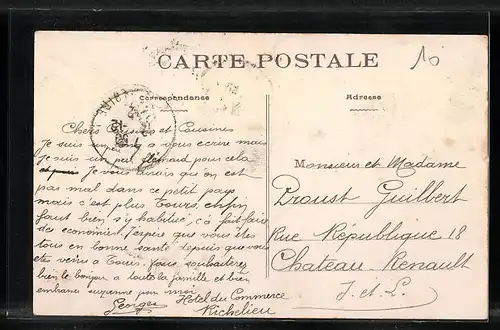 CARTE POSTALE
10
Correspondance
Adresse
Chers Cousins et Cousines
Je suis un peu long a vous ecrire mais
Je suis un peu flémard pour cela
Je vous dirais que on est
pas mal dans ce petit pays
mais c'est plus Tours, enfin
faut bien s'y habituer, ça fait faire
des economies. J'espère que vous êtes
tous en bonne santé depuis que vous
etes venus a Tours, vous souhaiterez
bien le bonjour a toute la famille et bien
embrasse suzanne par moi.
Georges
Hotel du Commerce
Richelieu
Monsieur et Madame
Proust Guilbert
Rue République 18
Chateau Renault
I. et L.